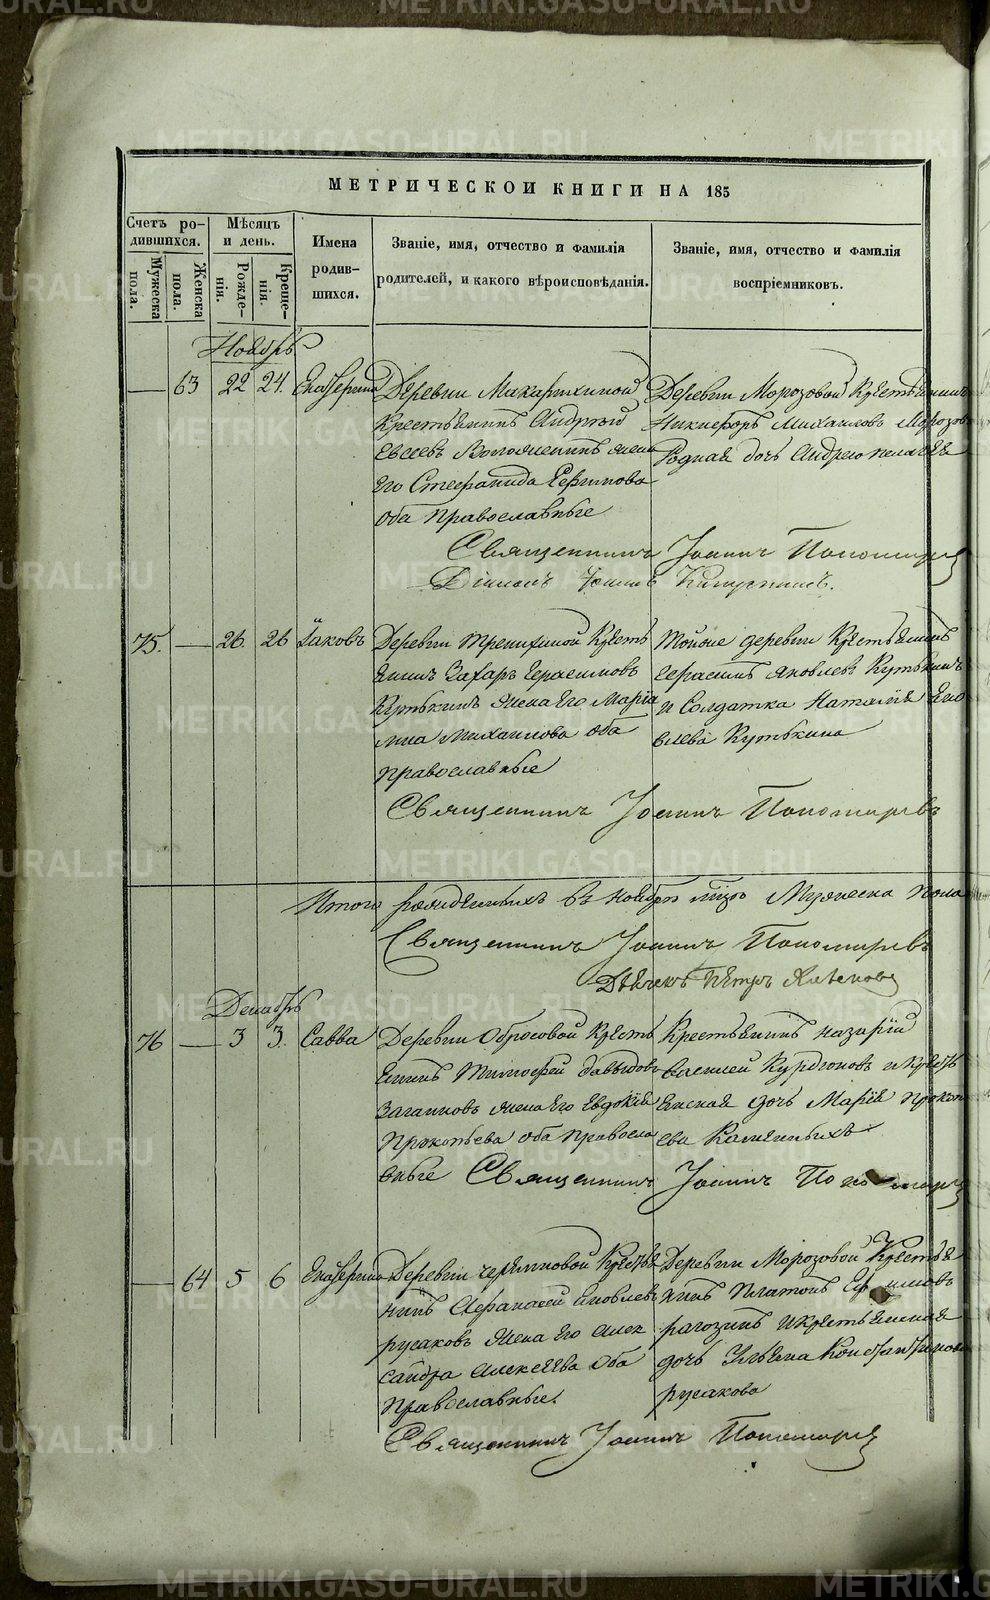 МЕТРИЧЕСКОИ КНИГИ НА 185
Счетъ ро-
дившихся.
Мужеска
пола.
Женска
пола.
Мѣсяцъ
и день.
Рожде-
нія.
Креще-
нія.
Имена
родив-
шихся.
Званіе, имя, отчество и фамилія
родителей, и какого вѣроисповѣданія.
Званіе, имя, отчество и фамилія
воспріемниковъ.
Ноябрь
63 22 24 Екатерина
Деревни
Крестьянинъ Андрей
Евсеевъ жена
его Стефанида Ефимова
оба Православные
Деревни Морозовой Крестьянинъ
Никифоръ Михаиловъ Морозов
Родная дочь Андрею Пелагея
Священникъ Іоаннъ Пономарев
Діаконъ
75. 26. 26 Іаковъ
Деревни Трепихиной Кресть
янинъ Захаръ Герасимовъ
Кутькинъ жена его Марія
Михаилова оба
православные
Тойже деревни Крестьянинъ
Герасимъ Яковлевъ Кутькинъ
и Солдатка Наталья Его
Кутькина
Священникъ Іоаннъ Пономаревъ
Итого рожденныхъ въ ноябрѣ Мужеска пола
Священникъ Іоаннъ Пономаревъ
Дьячекъ Петръ
Декабрь
76 3 3. Савва
Деревни Обросовой Кресть
янинъ Тимофей Давыдовъ
жена его Евдокія
Прокопьева оба Правосла
вные
Крестьянинъ Назарій
и Кресть
янская дочь Марія Прокоп
ева Каменныхъ
Священникъ Іоаннъ
64 5 6 Екатерина
Деревни Черемновой Крестья
нинъ Афанасей Яковлевъ
русаковъ жена его Алек
сандра Алексеева Оба
Православные.
Деревни Морозовой Крестья
нинъ Платонъ Ефимовъ
рагозинъ и крестьянская
дочь Ульяна Константинова
русакова
Священникъ Іоаннъ Пономарев
METRIKI.GASO-URAL.RU